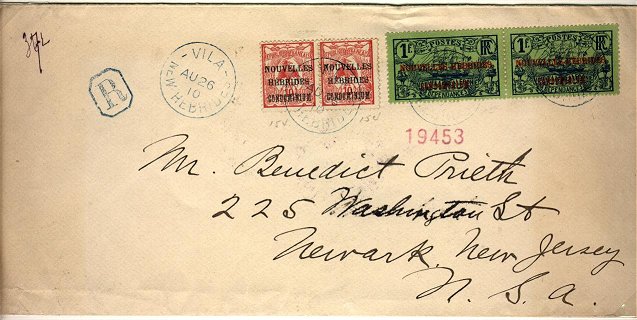 VILA
NEW HEBRIDES
AU 26
10
R
NOUVELLES
HEBRIDES
CONDOMINIUM
NOUVELLES
HEBRIDES
CONDOMINIUM
1F POSTES RF
NOUVELLES HEBRIDES
CONDOMINIUM
1F POSTES RF
NOUVELLES HEBRIDES
CONDOMINIUM
19453
Mr. Benedict Prieth
225 Washington St
Newark, New Jersey
U. S. A.